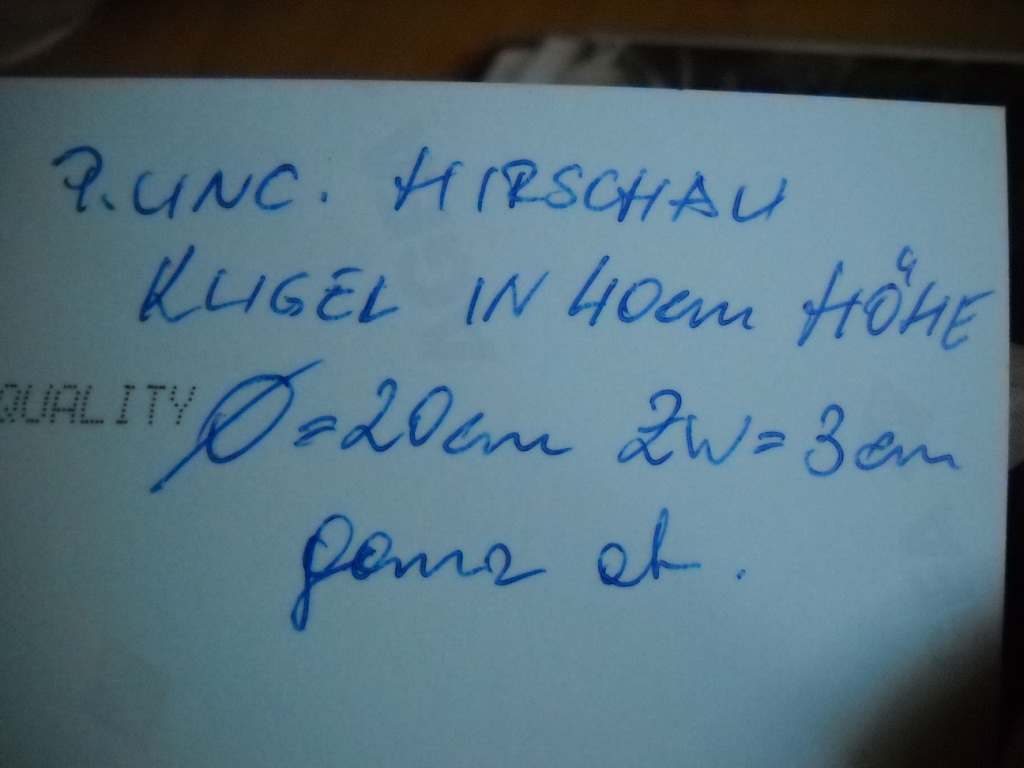 P. UNC. HIRSCHAU
KUGEL IN 40cm HÖHE
QUALITY
Ø=20cm ZW=3cm
ganz ab.